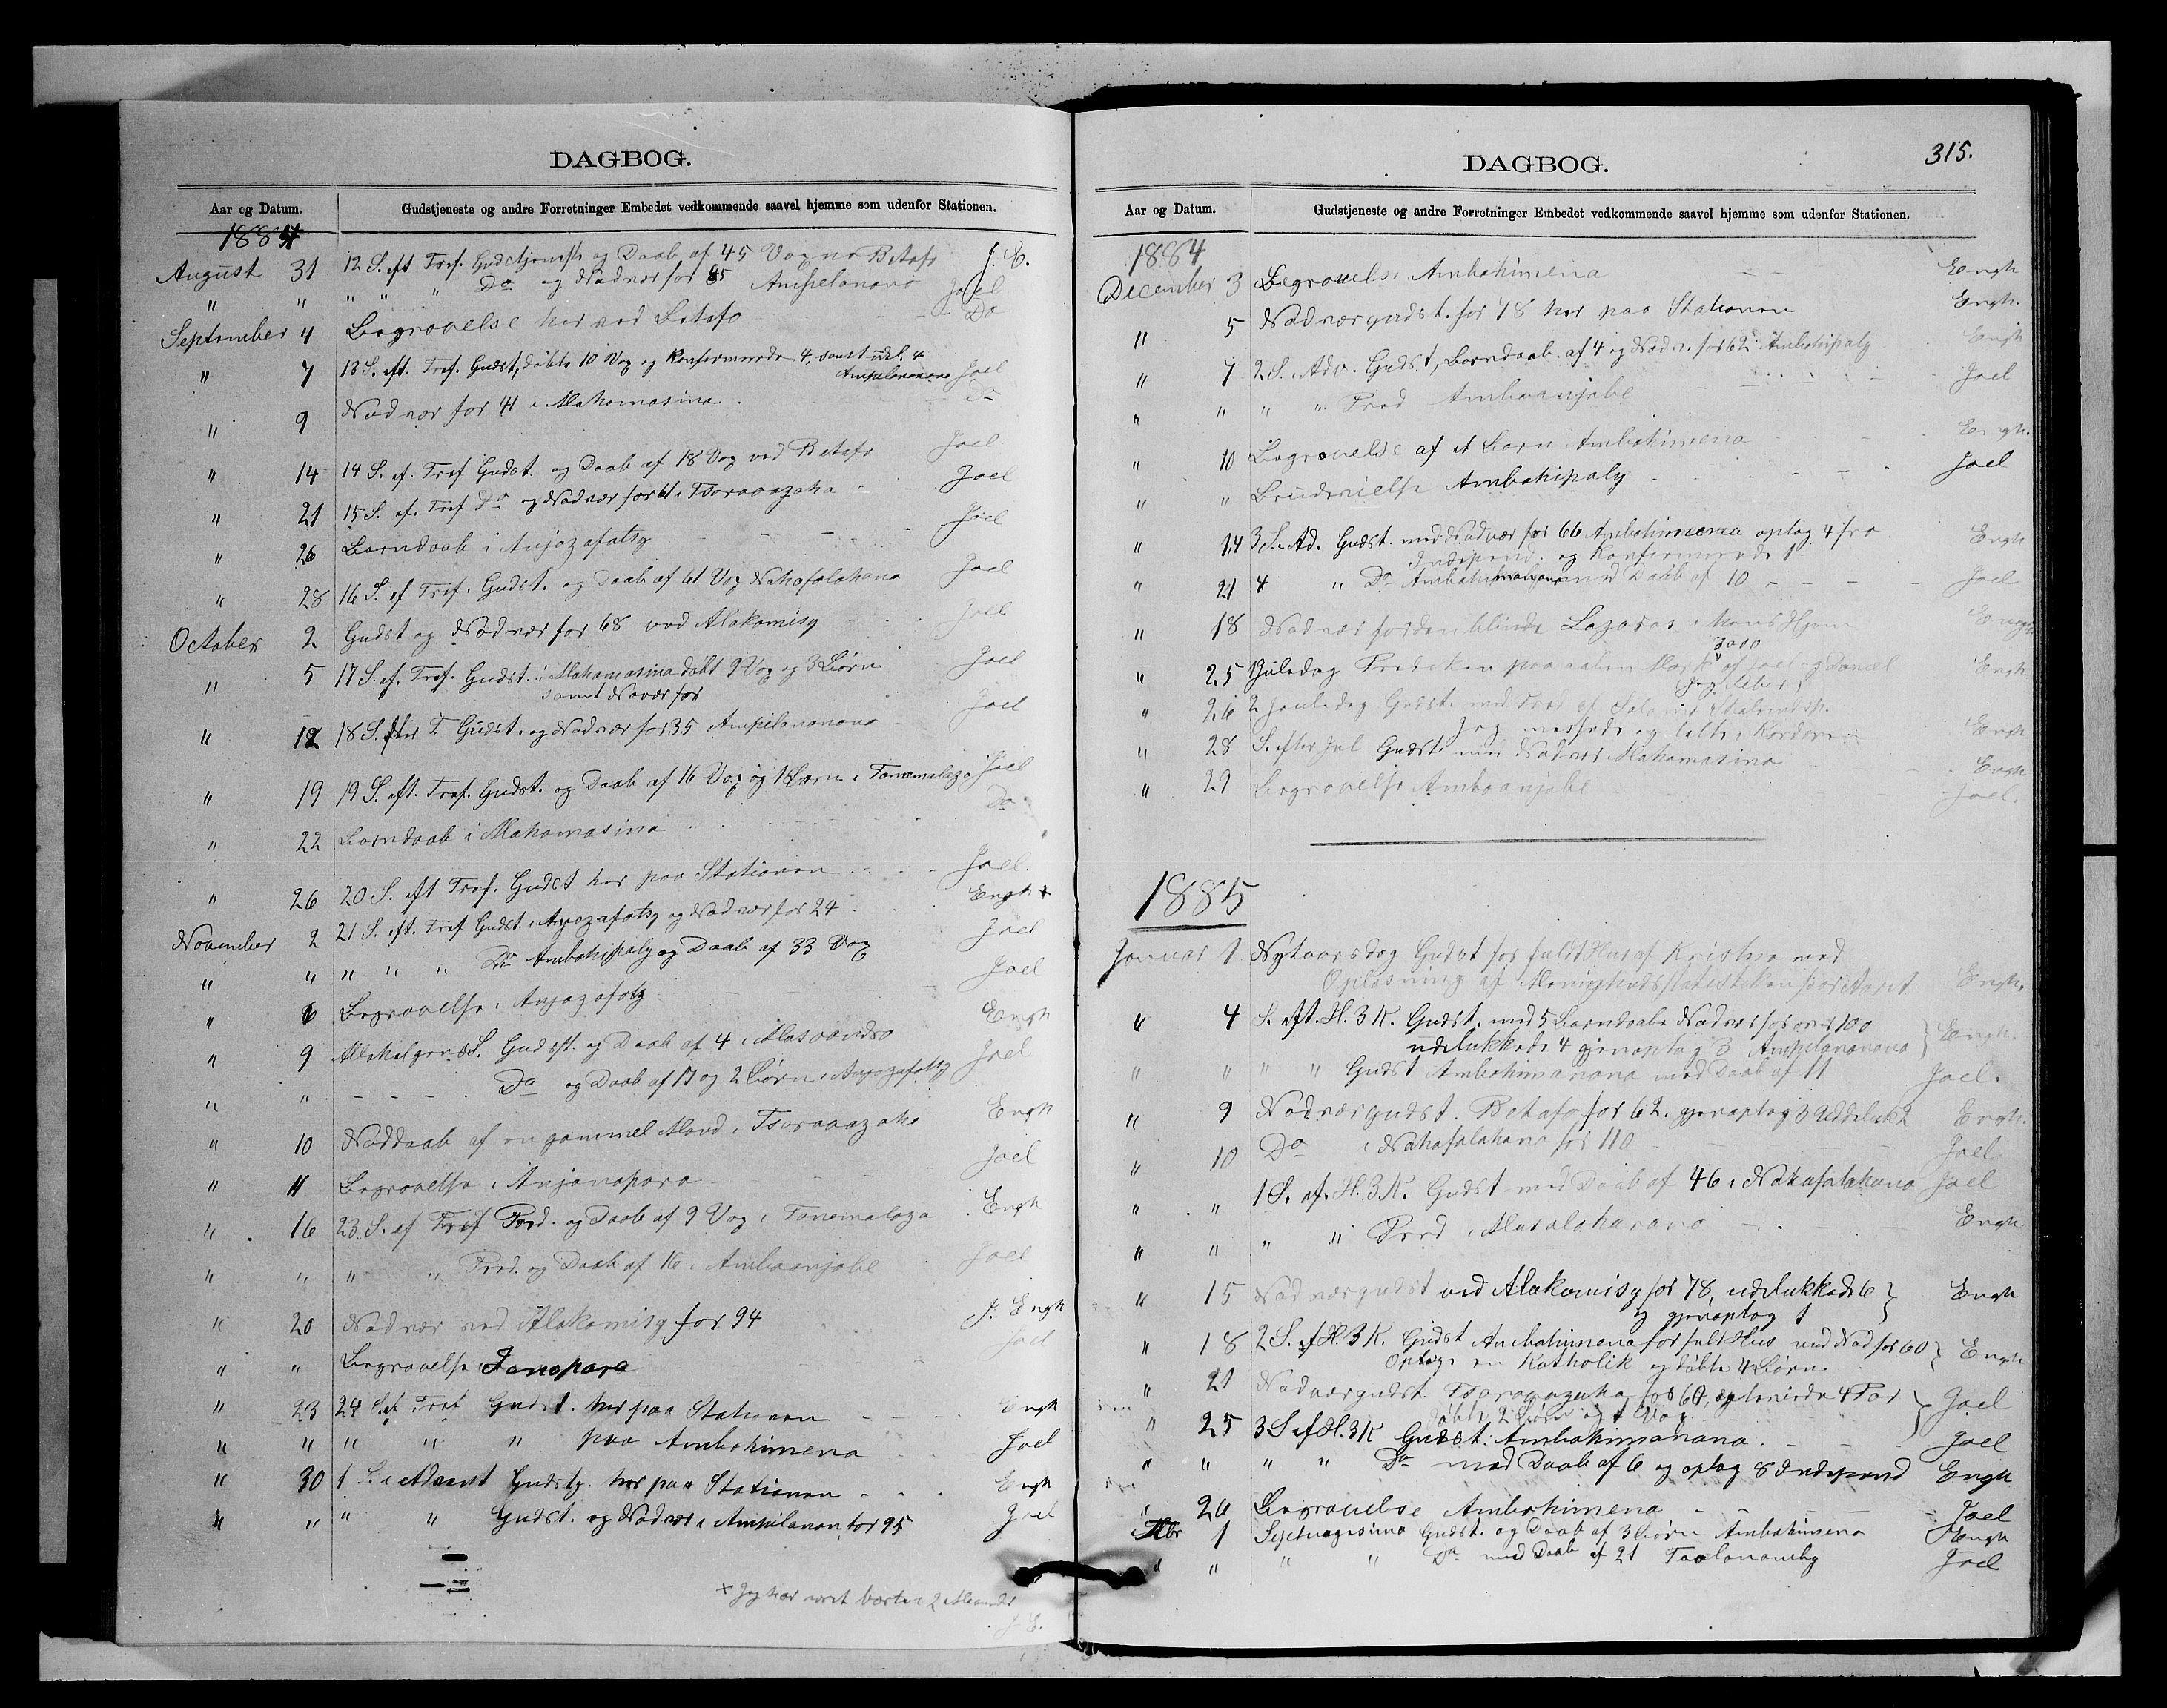 DAGBOG.
Aar og Datum. Gudstjeneste og andre Forretninger Embedet vedkommende saavel hjemme som udenfor Stationen.
1884
August 31 12 S. eft Tref. Gudstjeneste og Daab af 45 Vox Betafo J. E.
" " " " " Do og Nadver for 85 Ampelanana Joel
September 4 Begravelse her ved Betafo Do
" 7 13 S. eft. Tref. Gudst, døbte 10 Vox og Konfirmerede 4, samt udel. 4
Ampelanana Joel
" 9 Nadver for 41 i Mahamasina Do
" 14 14 S. ef. Tref Gudst. og Daab af 18 Vox ved Betafo Joel
" 21 15 S. ef. Tref Do og Nadver for 61 i Tsaravazaha Joel
" 26 Barndaab i Anjazafotsy Joel
" 28 16 S. ef Tref. Gudst. og Daab af 61 Vox Nahafalahana Joel
October 2 Gudst og Nadver for 68 ved Alakamisy Joel
" 5 17 S. ef. Tref. Gudst. i Mahamasina døbt 9 Vox og 3 Børn Joel
samt Nadver for
" 12 18 S. efter T. Gudst. og Nadver for 35 Ampilanana Joel
" 19 19 S. eft. Tref. Gudst. og Daab af 16 Vox og 1 Barn i Tanimalaza Joel
" 22 Barndaab i Mahamasina Do
" 26 20 S. eft Tref. Gudst her paa Stationen Joel.
November 2 21 S. eft. Tref Gudst. i Anjazafotsy og Nadver for 24 Engh +
" " " " " Do Ambohipaly og Daab af 33 Vox Joel
" 6 Begravelse i Anjazafotsy Joel
" 9 Allehelgens S. Gudst. og Daab af 4 i Masoandro Engh
" " - - - - Do og Daab af 13 og 2 Børn i Anjazafotsy Joel
" 10 Nøddaab af en gammel Mand i Tsaravazaha Engh
" 11 Begravelse i Anjanapara Joel
" 16 23 S. ef Tref Præd. og Daab af 9 Vox i Tanimalaza Engh
" " " " Præd. og Daab af 16 i Amboanjobe Joel
" 20 Nadver ved Alakamisy for 94 J. Engh
" " Begravelse i Janapara Joel
" 23 24 S. ef Tref Gudst. her paa Stationen Engh
" " " " " paa Ambohimena Joel
" 30 1 S. i Advent Gudstj. her paa Stationen Engh
" " " " Gudst. og Nadver i Ampilanan for 95 Joel
+ Jeg har været borte i 2 Maaneder
J. E.
315.
DAGBOG.
Aar og Datum. Gudstjeneste og andre Forretninger Embedet vedkommende saavel hjemme som udenfor Stationen.
1884
December 3 Begravelse Ambohimena Engh
" 5 Nadvergudst. for 78 her paa Stationen Engh.
" 7 2 S. i Adv. Gudst, Barndaab af 4 og Nadv. for 62 i Ambohipaly Engh
" " " " Præd Amboanjobe Joel
" 10 Begravelse af et Barn Ambohimena Engh.
" " Brudevielse Ambohipaly Joel
" 14 3 S. i Ad. Gudst. med Nadver for 66 Ambohimena optog 4 fra Engh
Independ. og Konfirmerede 1
" 21 4 " Do Ambohimanana med Daab af 10 Joel
" 18 Nadver for den blinde Lazarus i Hans Hjem Engh
" 25 1 Juledag Prædiken paa aaben Mark af Joel og Daniel Engh
" 26 2 Juledag Gudst. med Præd af
Jeg messede og talte
" 28 S. efter Jul Gudst. med Nadver Mahamasina Engh
" 29 Begravelse Amboanjobe Joel.
1885
Januar 1 Nytaarsdag Gudst for fuldt Hus af Kristne med
Oplæsning af Menighedsstatistiken for Aaret Engh.
" 4 S. eft. H. 3 K. Gudst. med 5 Barndaab Nadver for over 100
udelukkede 4 gjenoptog 3 Ampilanana } Engh.
" " " " Gudst Ambohimanana med Daab af 11 Joel.
" 9 Nadvergudst. Betafo for 62. gjenoptog 3 Uddeluk 2 Engh.
" 10 Do i Nahafalahana for 110 Joel
" " 1 S. ef. H. 3 K. Gudst med Daab af 46 i Nahafalahana Joel
" " " " Præd i Masalaharano Engh
" 15 Nadvergudst ved Alakamisy for 78, udelukkede 6 } Engh
og gjenoptog 1
" 18 2 S. ef H. 3 K. Gudst Ambohimena for fuldt Hus med Nad for 60 } Engh
Optog en Katholik og døbte 4 Børn
" 21 Nadvergudst. Tsaravazaha for 60, copulerede 4 Par } Joel
døbte 2 Børn og 1 Vox
" 25 3 S ef H. 3 K Gudst. Ambohimanana Joel
" " " " Do med Daab af 6 og optog 8 Independ Engh
" 26 Begravelse Ambohimena Joel
Febr 1 Septuagesima Gudst. og Daab af 3 Børn Ambohimena Engh
" " " " Do med Daab af 21 Joel